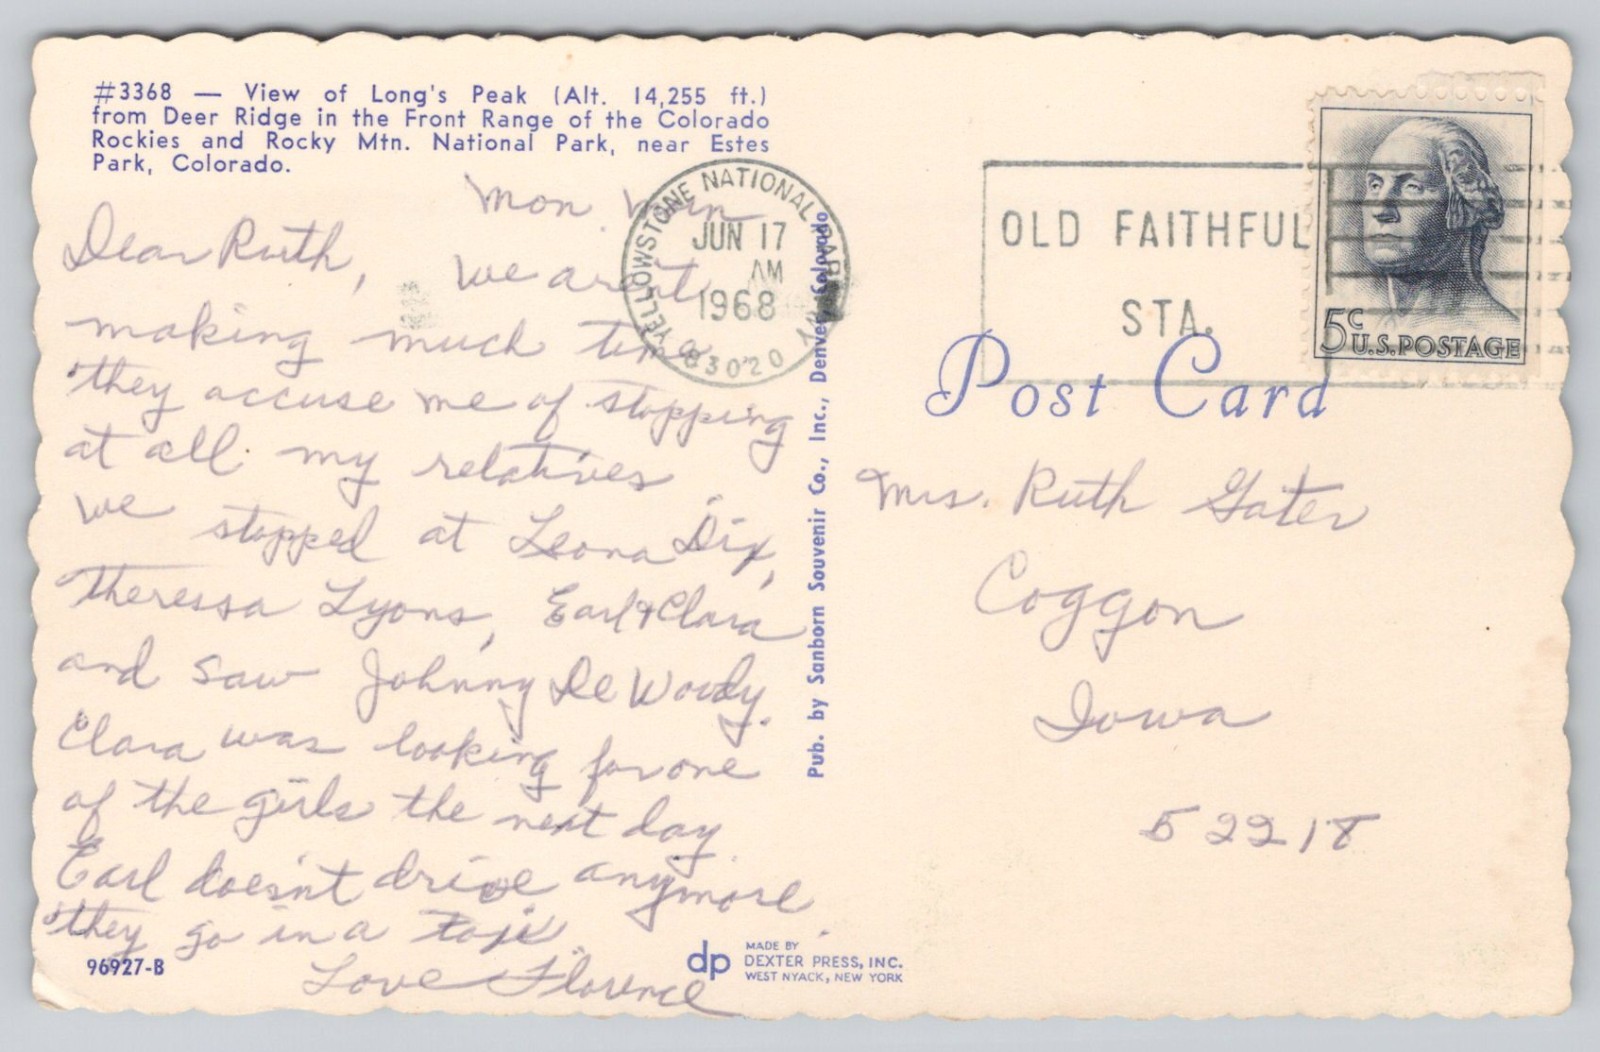 #3368 — View of Long's Peak (Alt. 14,255 ft.)
from Deer Ridge in the Front Range of the Colorado
Rockies and Rocky Mtn. National Park, near Estes
Park, Colorado.
Mon
Dear Ruth, We arent
making much time
they accuse me of stopping
at all my relatives
We stopped at Leona Dix,
Theressa Lyons, Earl & Clara
and saw Johnny DeWoody.
Clara was looking for one
of the girls the next day
Earl doesn't drive anymore
they go in a taxi
Love Florence
96927-B
YELLOWSTONE NATIONAL PARK
JUN 17
AM
1968
83020
Pub. by Sanborn Souvenir Co., Inc., Denver, Colorado
dp
MADE BY
DEXTER PRESS, INC.
WEST NYACK, NEW YORK
OLD FAITHFUL
STA.
5c
U.S. POSTAGE
Post Card
Mrs. Ruth Gater
Coggon
Iowa
52218